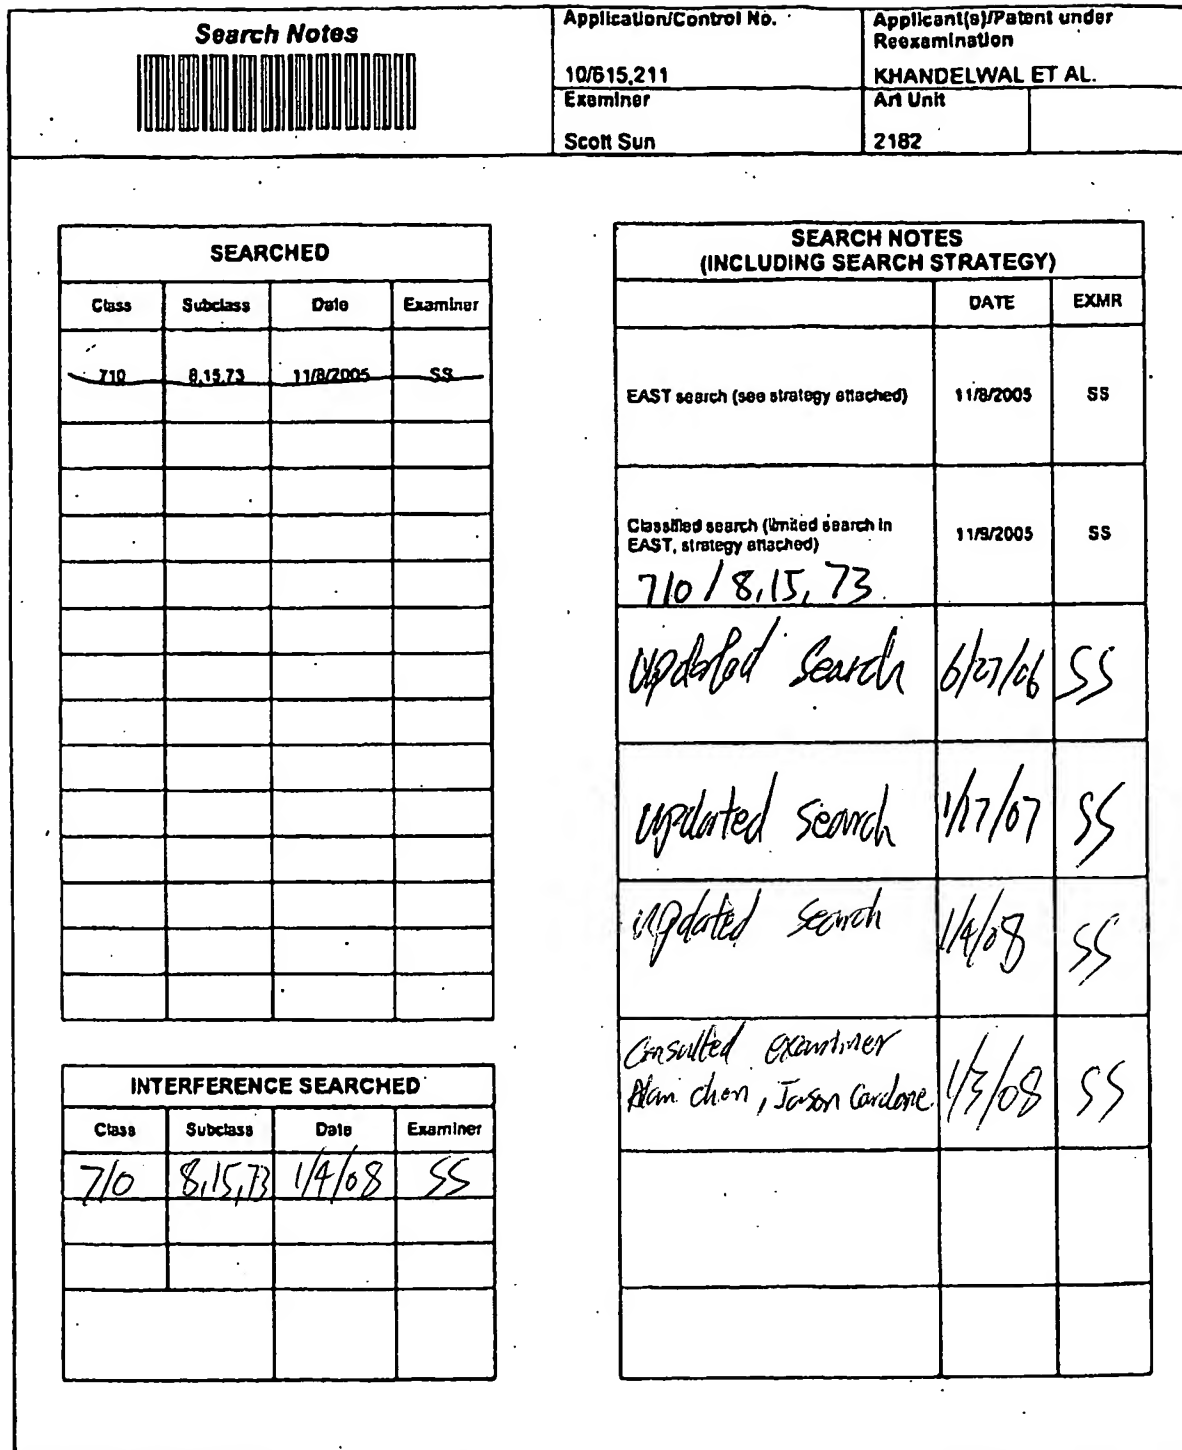 Search Notes
Application/Control No.
10/615,211
Applicant(s)/Patent under
Reexamination
KHANDELWAL ET AL.
Examiner
Scott Sun
Art Unit
2182
SEARCHED
Class Subclass Date Examiner
710 8,15,73 11/8/2005 SS
INTERFERENCE SEARCHED
Class Subclass Date Examiner
710 8,15,73 1/4/08 SS
SEARCH NOTES
(INCLUDING SEARCH STRATEGY)
DATE EXMR
EAST search (see strategy attached) 11/8/2005 SS
Classified search (limited search in
EAST, strategy attached) 11/9/2005 SS
710 / 8,15,73
updated search 6/27/06 SS
updated search 1/17/07 SS
updated search 1/4/08 SS
Consulted examiner
Alan Chen, Jason Cardone. 1/3/08 SS